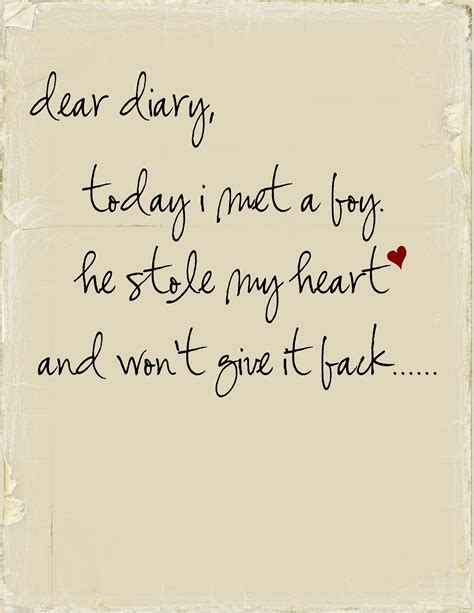 dear diary,
today i met a boy.
he stole my heart
and won't give it back......